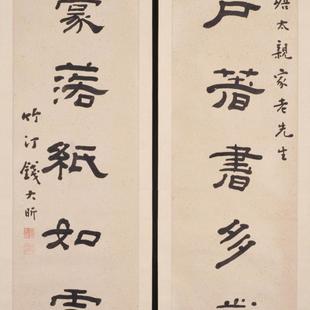 太親家老先生
戶著書多
豪落紙如
竹汀錢大昕